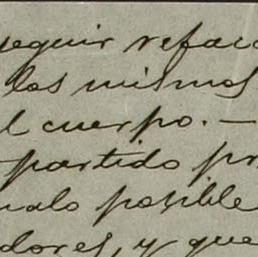 seguir refac
los mismos
l cuerpo. —
partido pr
malo posible
dores, y que